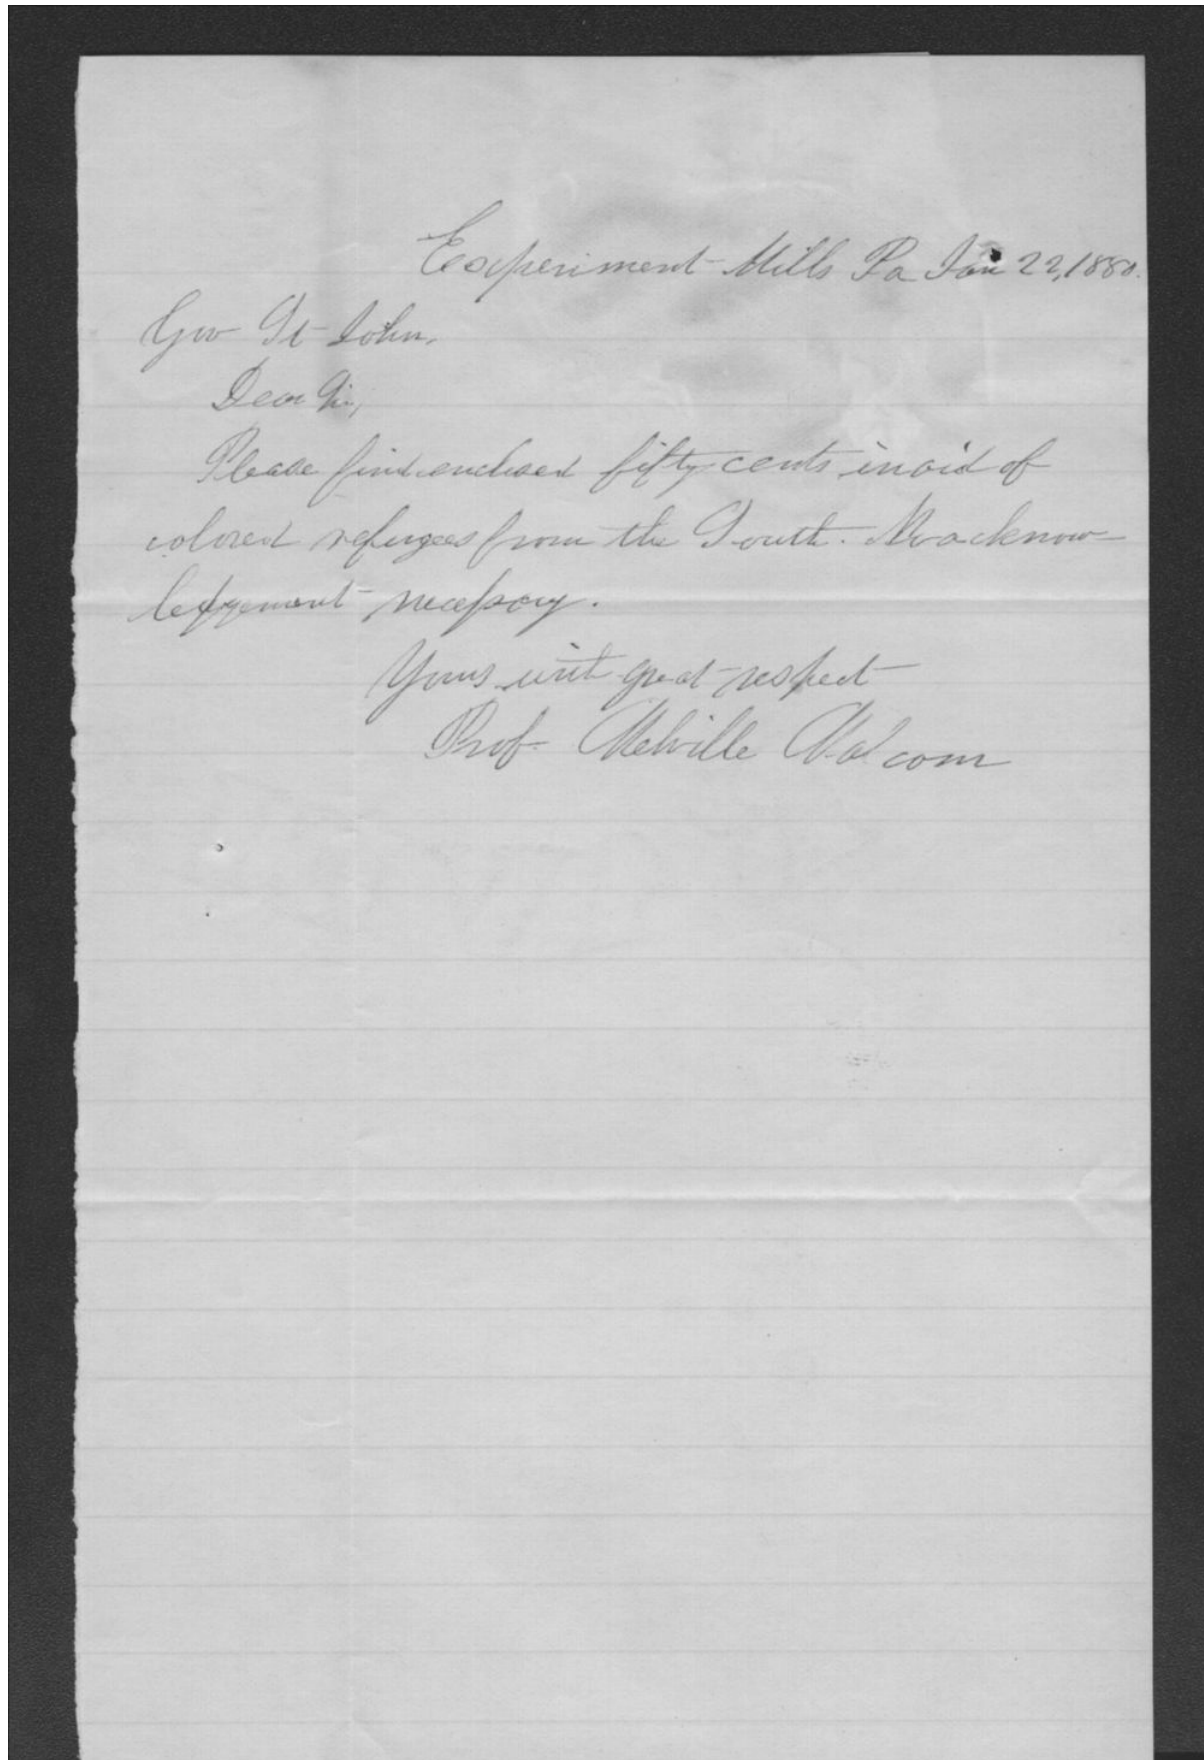 Experiment Mills Pa Jan 22, 1880.
Gov St John,
Dear Sir,
Please find enclosed fifty cents in aid of
colored refugees from the South. No acknow-
ledgement necessary.
Yours with great respect
Prof. Melville Malcom